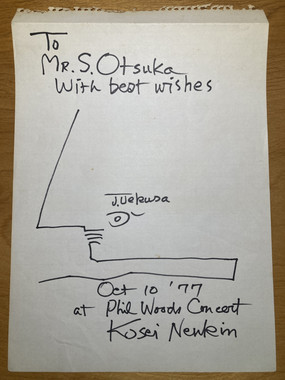 To
Mr. S. Otsuka
With best wishes
J. Uekusa
Oct 10 '77
at Phil Woods Concert
Kosei Nenkin